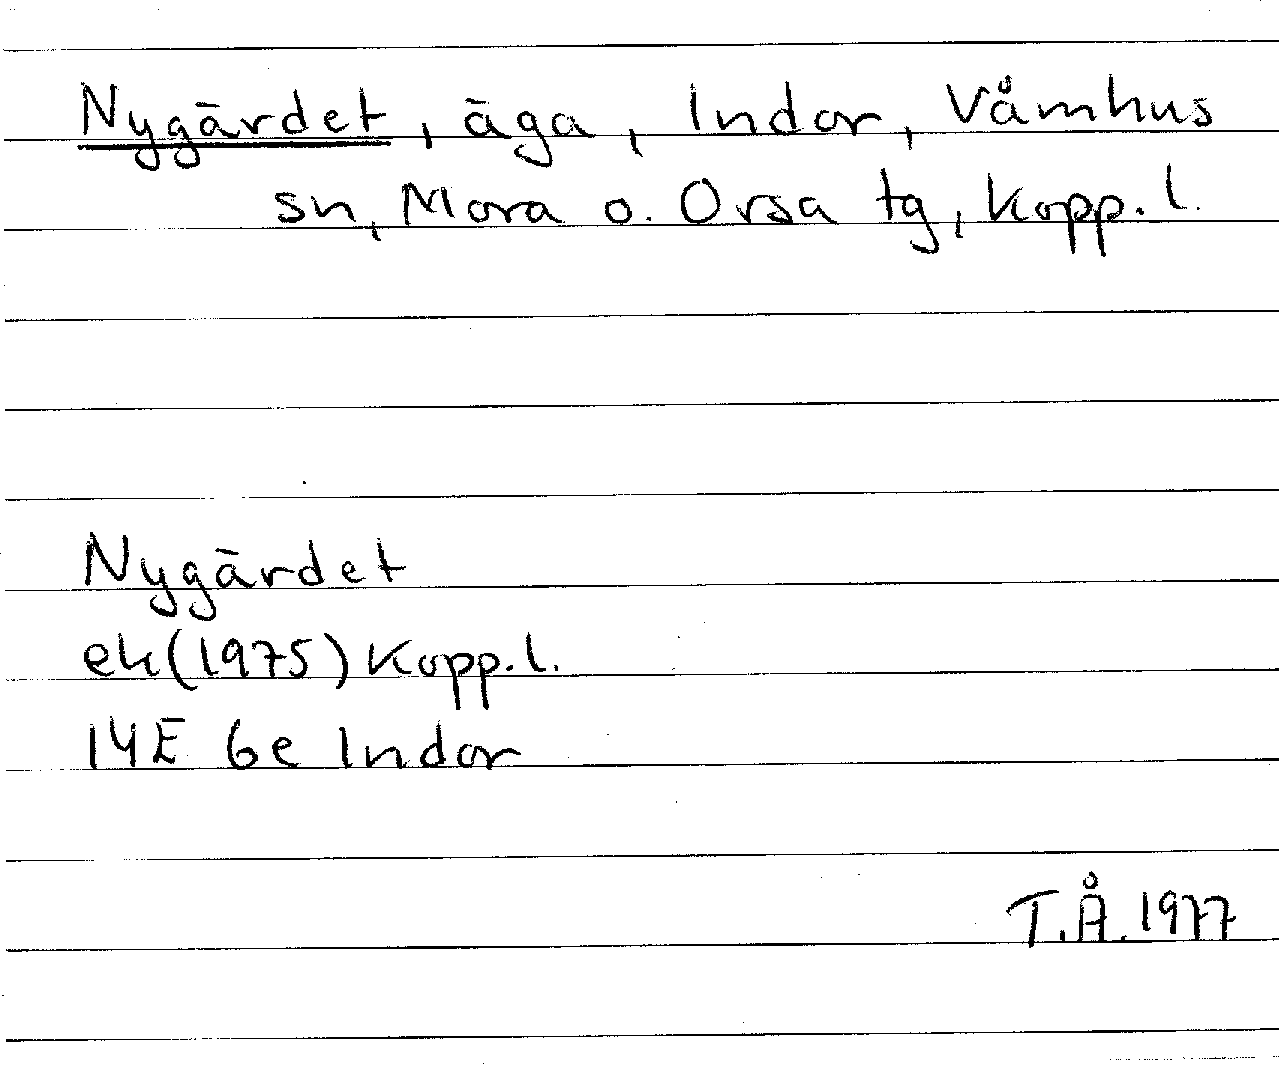 Nygärdet, äga, Indor, Våmhus
sn, Mora o. Orsa tg, Kopp. l.
Nygärdet
ek(1975) Kopp. l.
14E 6e Indor
T.Å. 1977